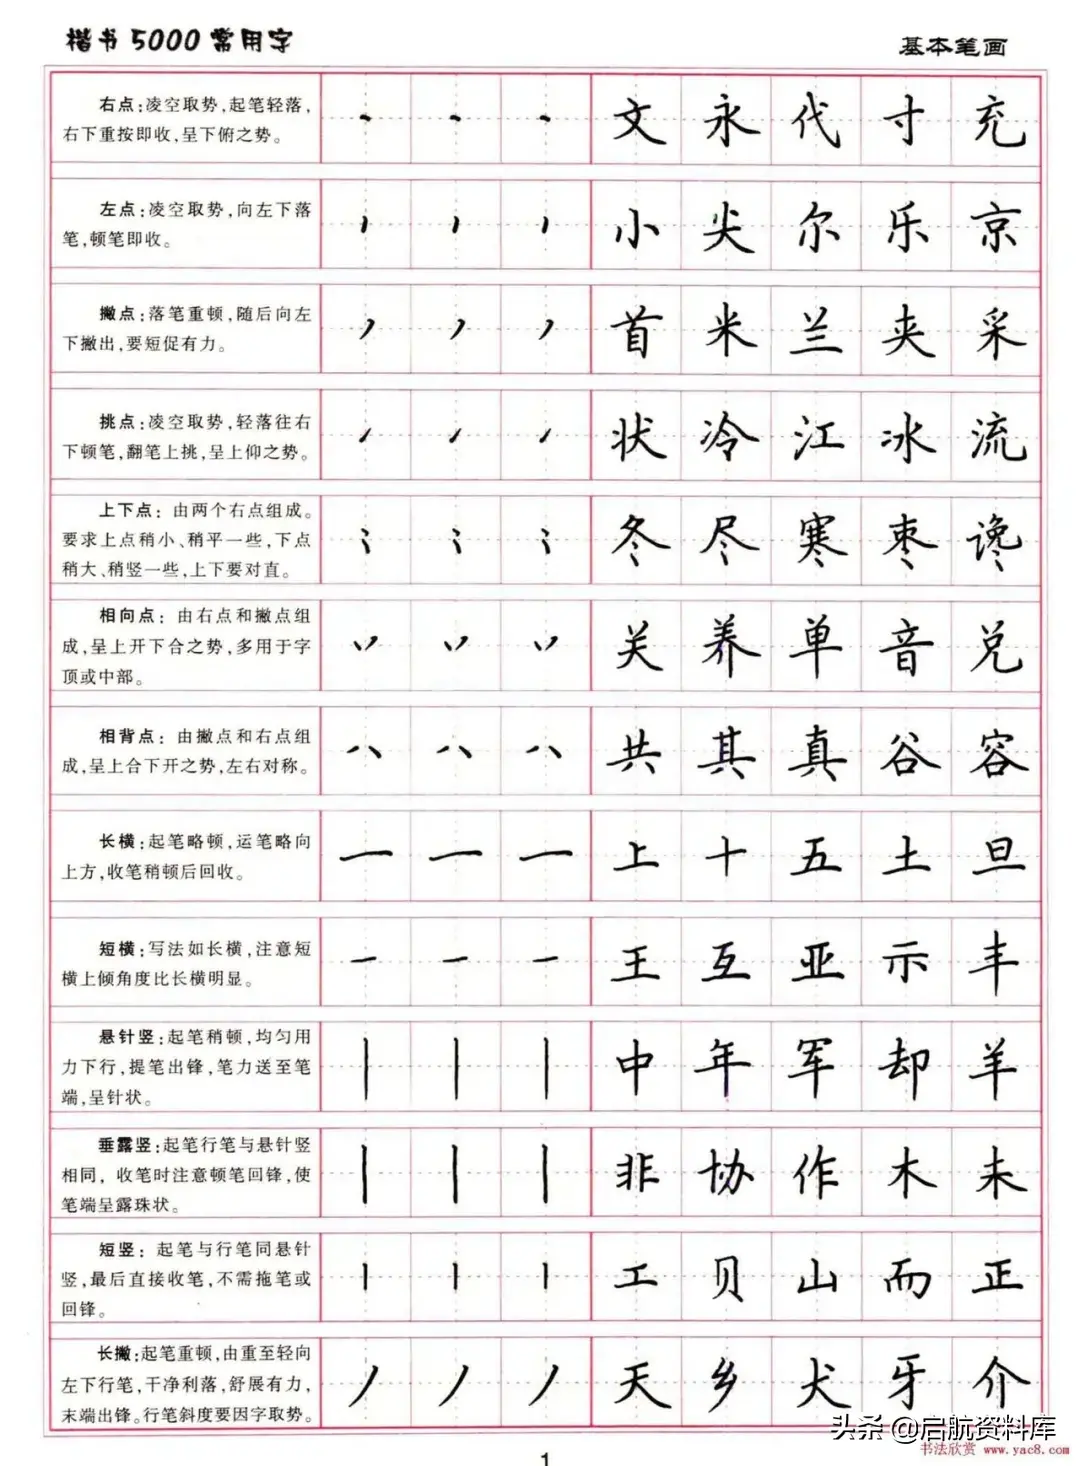 楷书5000常用字
基本笔画
右点:凌空取势,起笔轻落,
右下重按即收,呈下俯之势。
文 永 代 寸 充
左点:凌空取势,向左下落
笔,顿笔即收。
小 尖 尔 乐 京
撇点:落笔重顿,随后向左
下撇出,要短促有力。
首 米 兰 夹 采
挑点:凌空取势,轻落往右
下顿笔,翻笔上挑,呈上仰之势。
状 冷 江 冰 流
上下点:由两个右点组成。
要求上点稍小、稍平一些,下点
稍大、稍竖一些,上下要对直。
冬 尽 寒 枣 谗
相向点:由右点和撇点组
成,呈上开下合之势,多用于字
顶或中部。
关 养 单 音 兑
相背点:由撇点和右点组
成,呈上合下开之势,左右对称。
共 其 真 谷 容
长横:起笔略顿,运笔略向
上方,收笔稍顿后回收。
上 十 五 土 旦
短横:写法如长横,注意短
横上倾角度比长横明显。
王 互 亚 示 丰
悬针竖:起笔稍顿,均匀用
力下行,提笔出锋,笔力送至笔
端,呈针状。
中 年 军 却 羊
垂露竖:起笔行笔与悬针竖
相同,收笔时注意顿笔回锋,使
笔端呈露珠状。
非 协 作 木 未
短竖:起笔与行笔同悬针
竖,最后直接收笔,不需拖笔或
回锋。
工 贝 山 而 正
长撇:起笔重顿,由重至轻向
左下行笔,干净利落,舒展有力,
末端出锋。行笔斜度要因字取势。
天 乡 犬 牙 介
头条 @启航资料库
书法欣赏 www.yac8.com
1